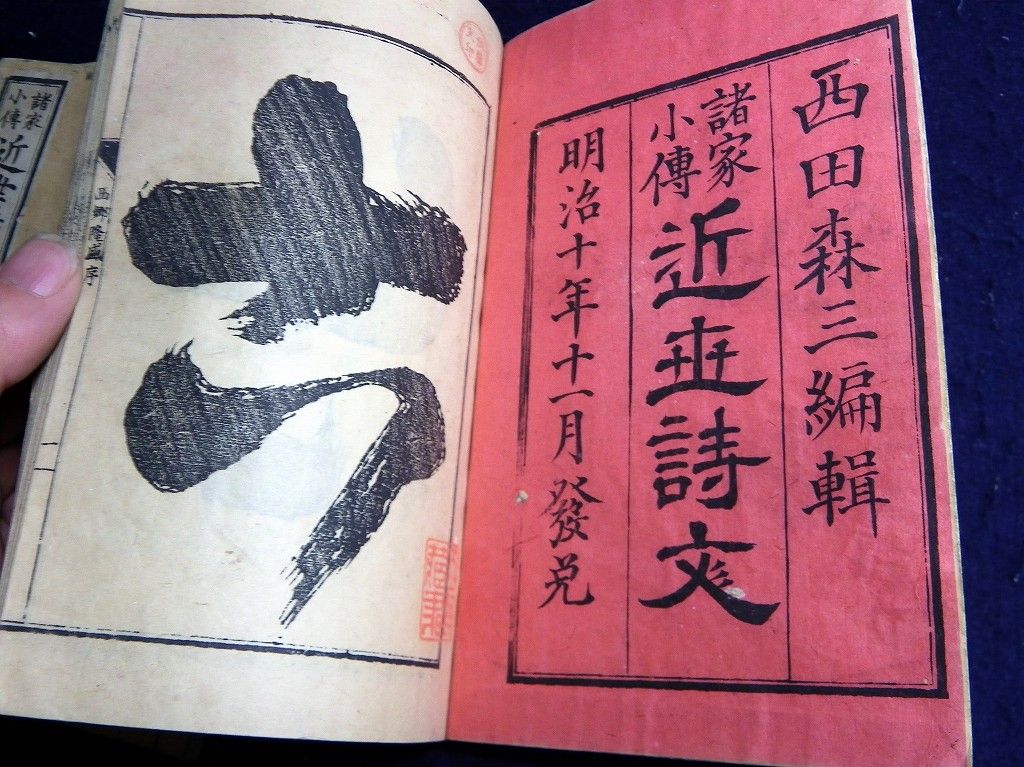 西田森三編輯
諸家
小傳
近世詩文
明治十年十一月發兌
西郷隆盛序
一
諸家
小傳
近世